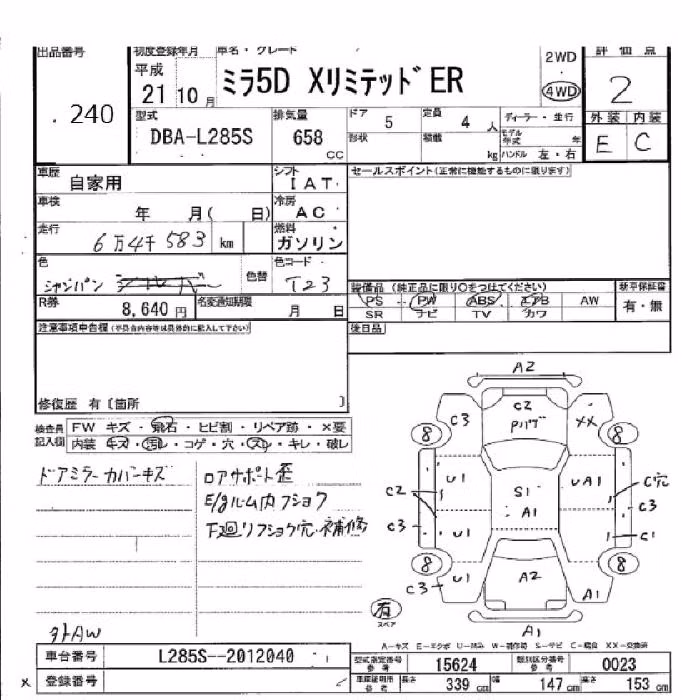 出品番号 初度登録年月 車名・グレード 2WD 評価点
240
平成 21 10 月 ミラ5D XリミテッドER 4WD 2
型式 排気量 ドア 5 定員 4 人 ディーラー・並行 外装 内装
DBA-L285S 658 CC 形状 積載 kg モデル年式 年 ハンドル 左・右 E C
車歴 自家用 シフト IAT セールスポイント(正常に機能するものに限ります)
車検 年 月( 日) 冷房 AC
走行 6万4千583 km 燃料 ガソリン
色 シャンパン 色替 色コード T23
装備品(純正品に限り○をつけてください) 新車保証書
R券 8,640円 名変通知期限 月 日 PS PW ABS エアB AW 有・無
SR ナビ TV カワ
注意事項申告欄(不具合内容等は具体的に記入して下さい) 後日品
修復歴 有〔箇所 〕
検査員記入欄 FW キズ・飛石・ヒビ割・リペア跡・×要
内装 キズ・汚れ・コゲ・穴・スレ・キレ・破レ
ドアミラーカバーキズ ロアサポート歪
E/gルーム内フショク
下廻リフショク穴・補修
外AW
A2
C3 C2 XX
Pハゲ
8 8
U1 S1 UA1 C穴
C2 A1 C3
C3 U1 U1 C1
8 8
C3 U1 A2 A1
有 スペア
A1
A-キズ E-エクボ U-凹み W-補修跡 S-サビ C-腐食 XX-交換済
車台番号 L285S--2012040 型式指定番号 参考 15624 類別区分番号 参考 0023
× 登録番号 車庫証明用 参考 長さ 339 cm 幅 147 cm 高さ 153 cm